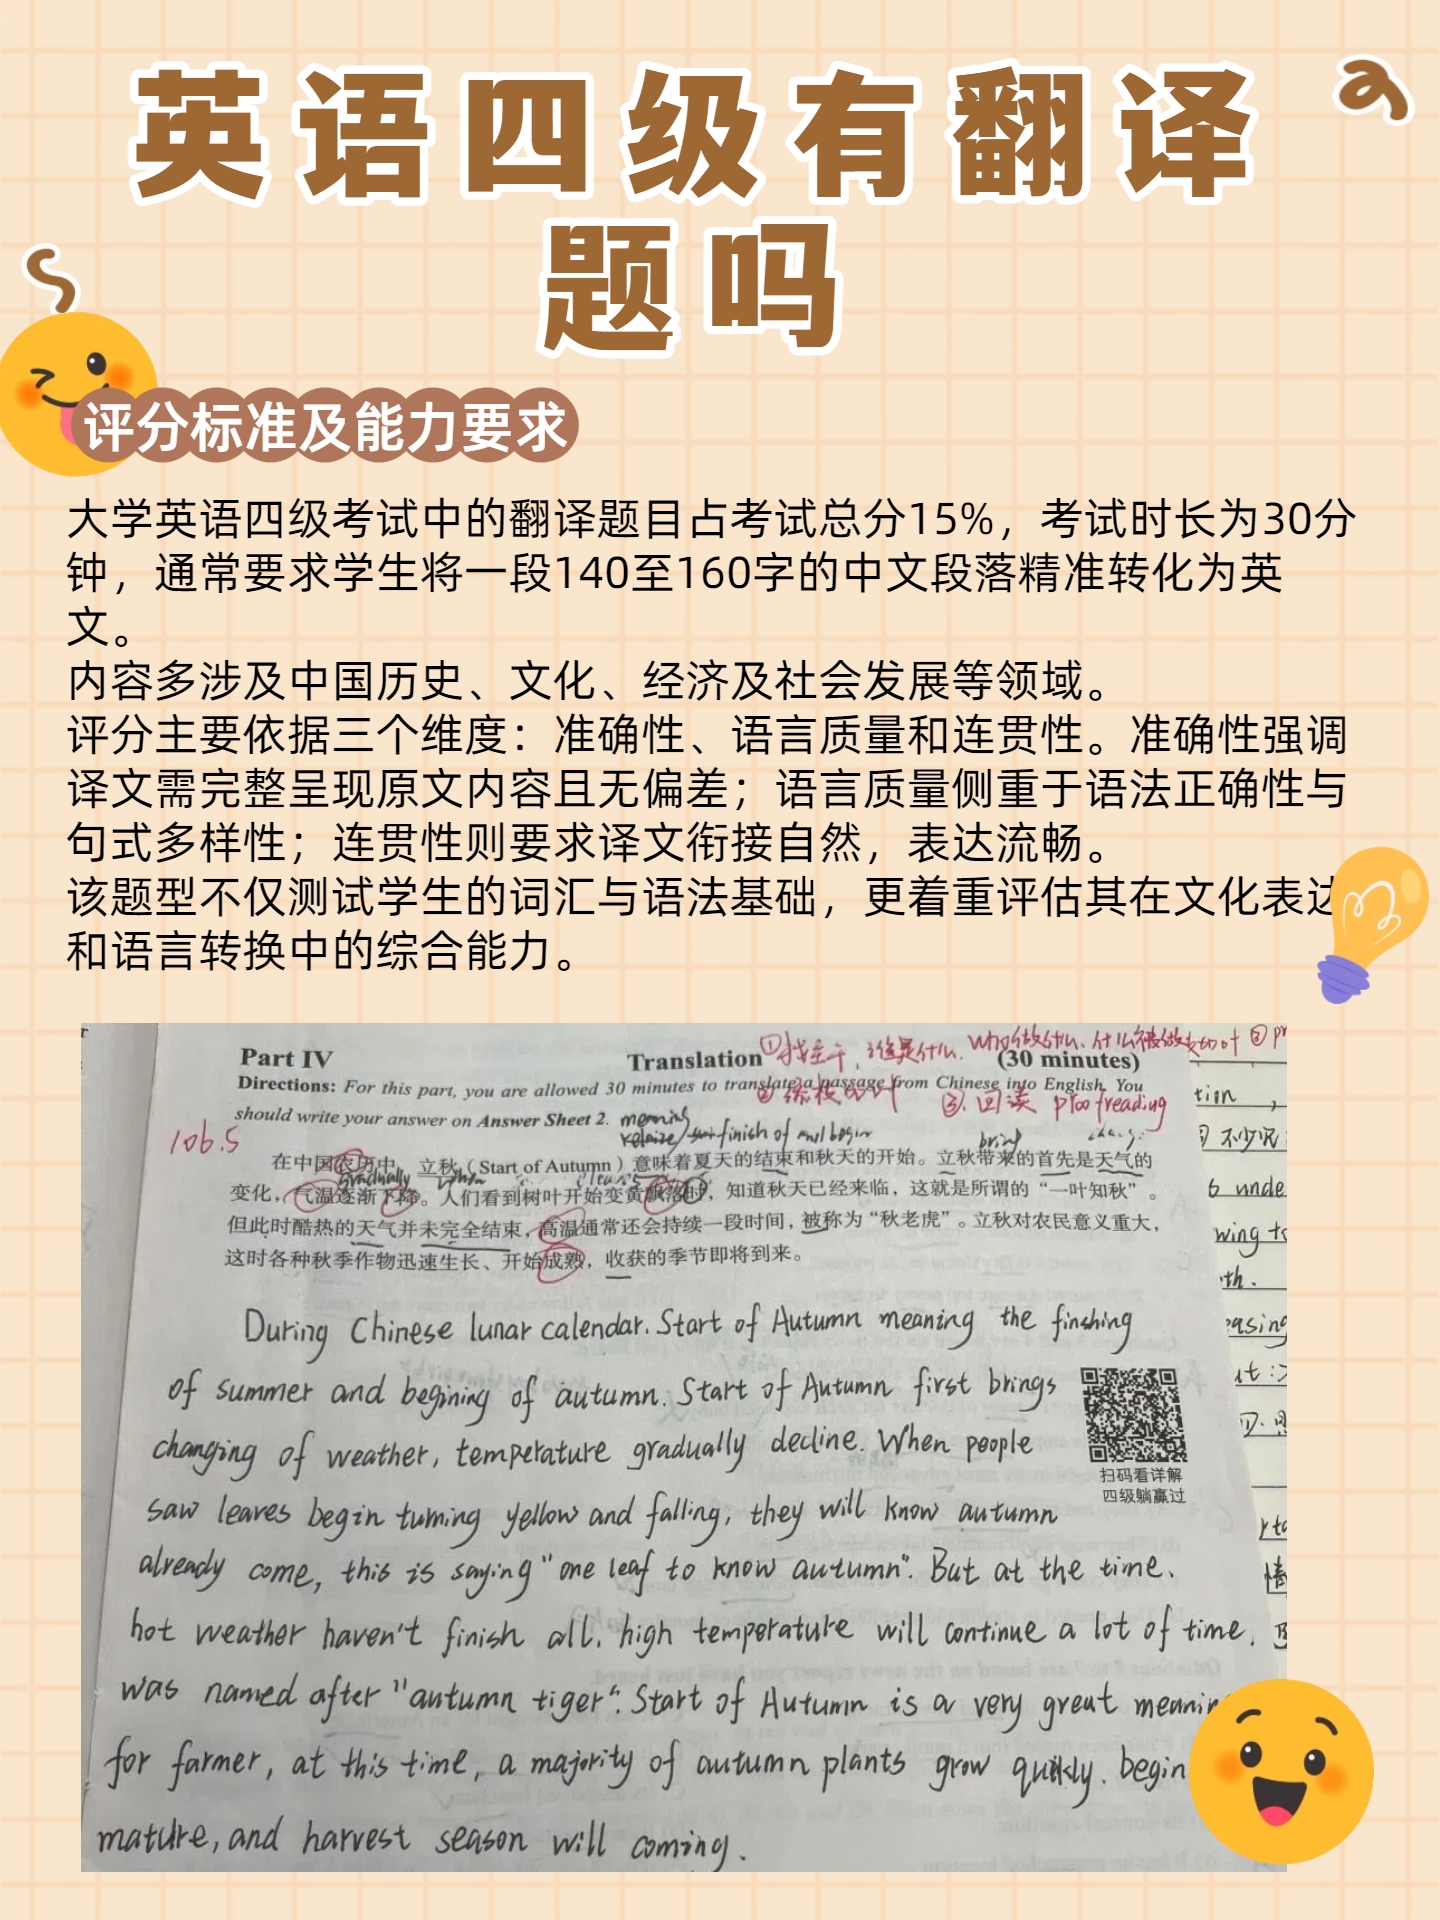 英语四级有翻译
题吗
评分标准及能力要求
大学英语四级考试中的翻译题目占考试总分15%，考试时长为30分
钟，通常要求学生将一段140至160字的中文段落精准转化为英
文。
内容多涉及中国历史、文化、经济及社会发展等领域。
评分主要依据三个维度：准确性、语言质量和连贯性。准确性强调
译文需完整呈现原文内容且无偏差；语言质量侧重于语法正确性与
句式多样性；连贯性则要求译文衔接自然，表达流畅。
该题型不仅测试学生的词汇与语法基础，更着重评估其在文化表达
和语言转换中的综合能力。
①找主干，谁是什么
Part IV Translation (30 minutes)
Directions: For this part, you are allowed 30 minutes to translate a passage from Chinese into English. You
should write your answer on Answer Sheet 2.
③.回读 ploofreading
106.5
meaning
finish of and begin
bring
在中国农历中，立秋（Start of Autumn）意味着夏天的结束和秋天的开始。立秋带来的首先是天气的
gradually when
变化，气温逐渐下降。人们看到树叶开始变黄飘落时，知道秋天已经来临，这就是所谓的“一叶知秋”。
但此时酷热的天气并未完全结束，高温通常还会持续一段时间，被称为“秋老虎”。立秋对农民意义重大，
这时各种秋季作物迅速生长、开始成熟，收获的季节即将到来。
During Chinese lunar calendar. Start of Autumn meaning the finshing
of summer and begining of autumn. Start of Autumn first brings
changing of weather, temperature gradually decline. When people
saw leaves begin turning yellow and falling, they will know autumn
already come, this is saying "one leaf to know autumn". But at the time.
hot weather haven't finish all. high temperature will continue a lot of time.
was named after "autumn tiger". Start of Autumn is a very great meanin
for farmer, at this time, a majority of autumn plants grow quikly. begin
mature, and harvest season will coming.
扫码看详解
四级躺赢过
tion ,
6 unde
wing to
th.
easing